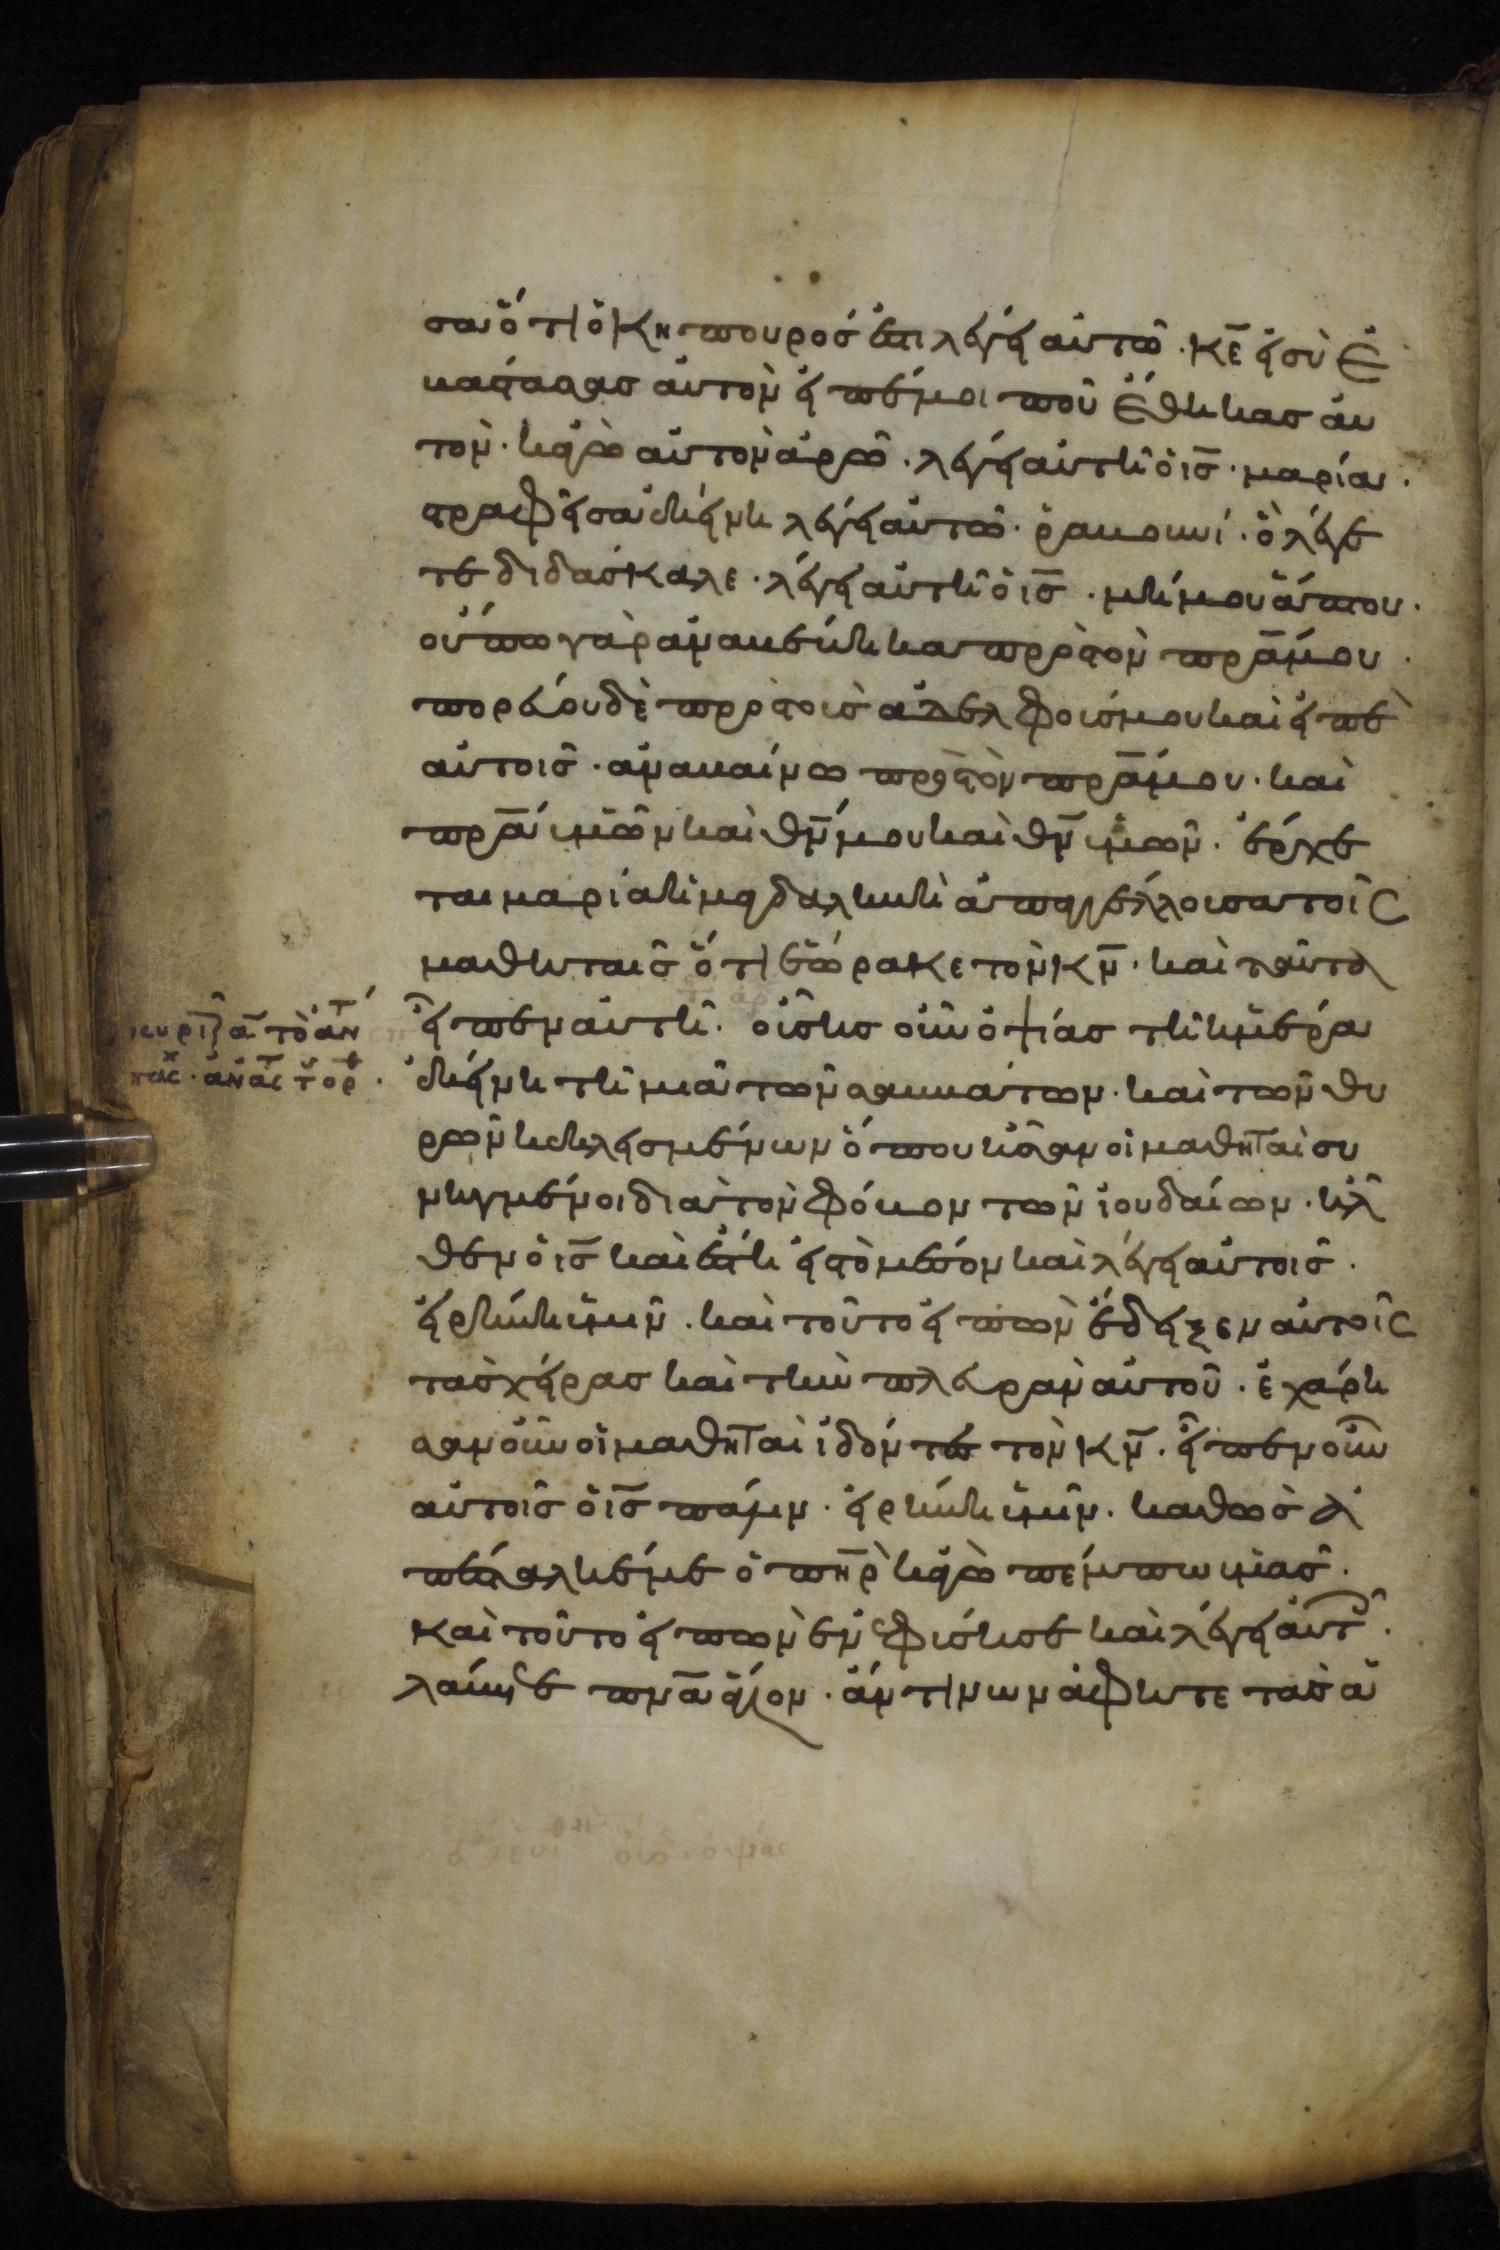 σα ὅτι ὁ κηπουρός ἐστι λέγει αὐτῶ · κ̅ε̅ εἰ σὺ ἐ
βάστασας αὐτὸν εἰπέ μοι ποῦ ἔθηκας αὐ
τὸν · κἀγὼ αὐτὸν ἀρῶ · λέγει αὐτῆ ὁ ι̅ς̅ · μαρία ·
στραφεῖσα ἐκείνη λέγει αὐτῶ · ῥαβουνί · ὃ λέγε
ται διδάσκαλε · λέγει αὐτῆ ὁ ι̅ς̅ · μή μου ἅπτου ·
οὔπω γὰρ ἀναβέβηκα πρὸς τὸν π̅ρ̅α̅ μου ·
πορεύου δὲ πρὸς τοὺς ἀδελφούς μου καὶ εἰπὲ
αὐτοῖς · ἀναβαίνω πρὸς τὸν π̅ρ̅α̅ μου · καὶ
π̅ρ̅α̅ ὑμῶν καὶ θ̅ν̅ μου καὶ θ̅ν̅ ὑμῶν · ἔρχε
ται μαρία ἡ μαγδαληνὴ ἀπαγγέλλουσα τοῖς
μαθηταῖς ὅτι ἑώρακε τὸν κ̅ν̅ · καὶ ταῦτα
εἶπεν αὐτῆ · οὔσης οὖν ὀψίας τῆ ἡμέρα
ἐκείνη τῆ μιᾶ τῶν σαββάτων · καὶ τῶν θυ
ρῶν κεκλεισμένων ὅπου ἦσαν οἱ μαθηταὶ συ
νηγμένοι διὰ τὸν φόβον τῶν ἰουδαίων · ἦλ
θεν ὁ ι̅ς̅ καὶ ἔστη εἰς τὸ μέσον καὶ λέγει αὐτοῖς ·
εἰρήνη ὑμῖν · καὶ τοῦτο εἰπὼν ἔδειξεν αὐτοῖς
τὰς χεῖρας καὶ τὴν πλευρὰν αὐτοῦ · ἐχάρη
σαν οὖν οἱ μαθηταὶ ἰδόντες τὸν κ̅ν̅ · εἶπεν οὖν
αὐτοῖς ὁ ι̅ς̅ πάλιν · εἰρήνη ὑμῖν · καθὼς ἀ
πέσταλκέ με ὁ π̅η̅ρ̅ κἀγὼ πέμπω ὑμᾶς ·
καὶ τοῦτο εἰπὼν ἐνεφύσησε καὶ λέγει αὐτ ·
λάβετε π̅ν̅α̅ ἅγιον · ἄν τινων ἀφῆτε τὰς ἁ